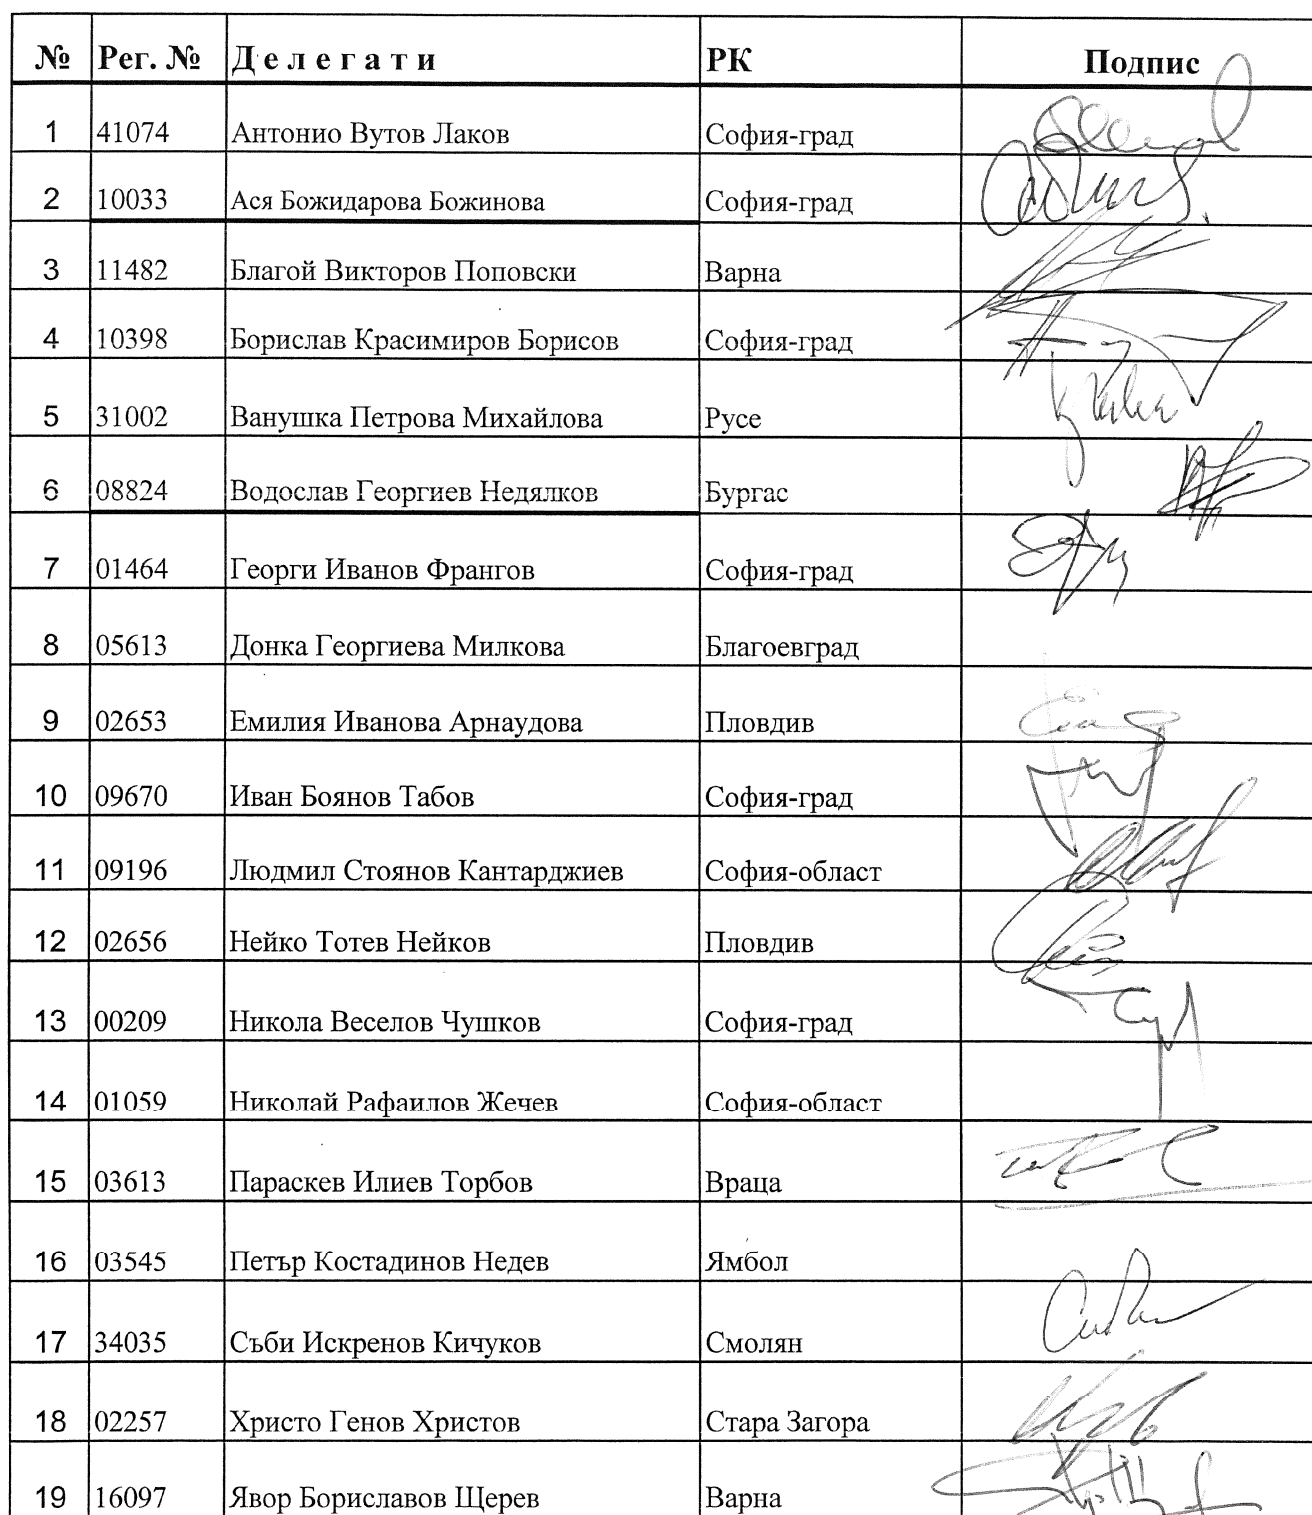 № Рег. № Делегати РК Подпис
1 41074 Антонио Вутов Лаков София-град
2 10033 Ася Божидарова Божинова София-град
3 11482 Благой Викторов Поповски Варна
4 10398 Борислав Красимиров Борисов София-град
5 31002 Ванушка Петрова Михайлова Русе
6 08824 Водослав Георгиев Недялков Бургас
7 01464 Георги Иванов Франгов София-град
8 05613 Донка Георгиева Милкова Благоевград
9 02653 Емилия Иванова Арнаудова Пловдив
10 09670 Иван Боянов Табов София-град
11 09196 Людмил Стоянов Кантарджиев София-област
12 02656 Нейко Тотев Нейков Пловдив
13 00209 Никола Веселов Чушков София-град
14 01059 Николай Рафаилов Жечев София-област
15 03613 Параскев Илиев Торбов Враца
16 03545 Петър Костадинов Недев Ямбол
17 34035 Съби Искренов Кичуков Смолян
18 02257 Христо Генов Христов Стара Загора
19 16097 Явор Бориславов Щерев Варна